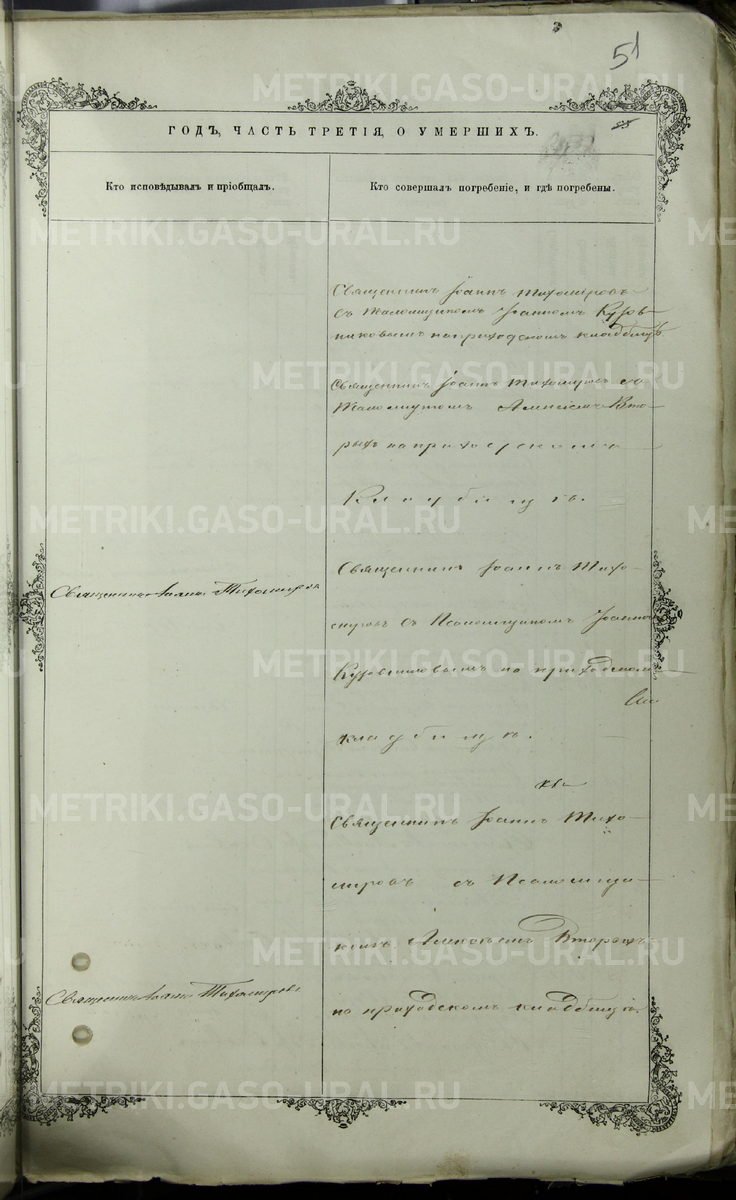 51
ГОДЪ, ЧАСТЬ ТРЕТІЯ, О УМЕРШИХЪ.
Кто исповѣдывалъ и пріобщалъ.
Кто совершалъ погребеніе, и гдѣ погребены.
Священникъ Іоаннъ Тихоміровъ
съ Псаломщикомъ Іоанномъ Куров-
никовымъ на приходскомъ кладбищѣ
Священникъ Іоаннъ Тихомировъ съ
Псаломщикомъ Алексѣемъ Вто-
рыхъ на приходскомъ
кладбищѣ.
Священникъ Іоаннъ Тихомировъ
Священникъ Іоаннъ Тихо-
мировъ съ Псаломщикомъ Іоанномъ
на приходскомъ
кладбищѣ.
Священникъ Іоаннъ Тихо-
мировъ съ Псаломщи-
комъ Алексѣемъ Вторыхъ
на приходскомъ кладбищѣ.
Священникъ Іоаннъ Тихомировъ
METRIKI.GASO-URAL.RU